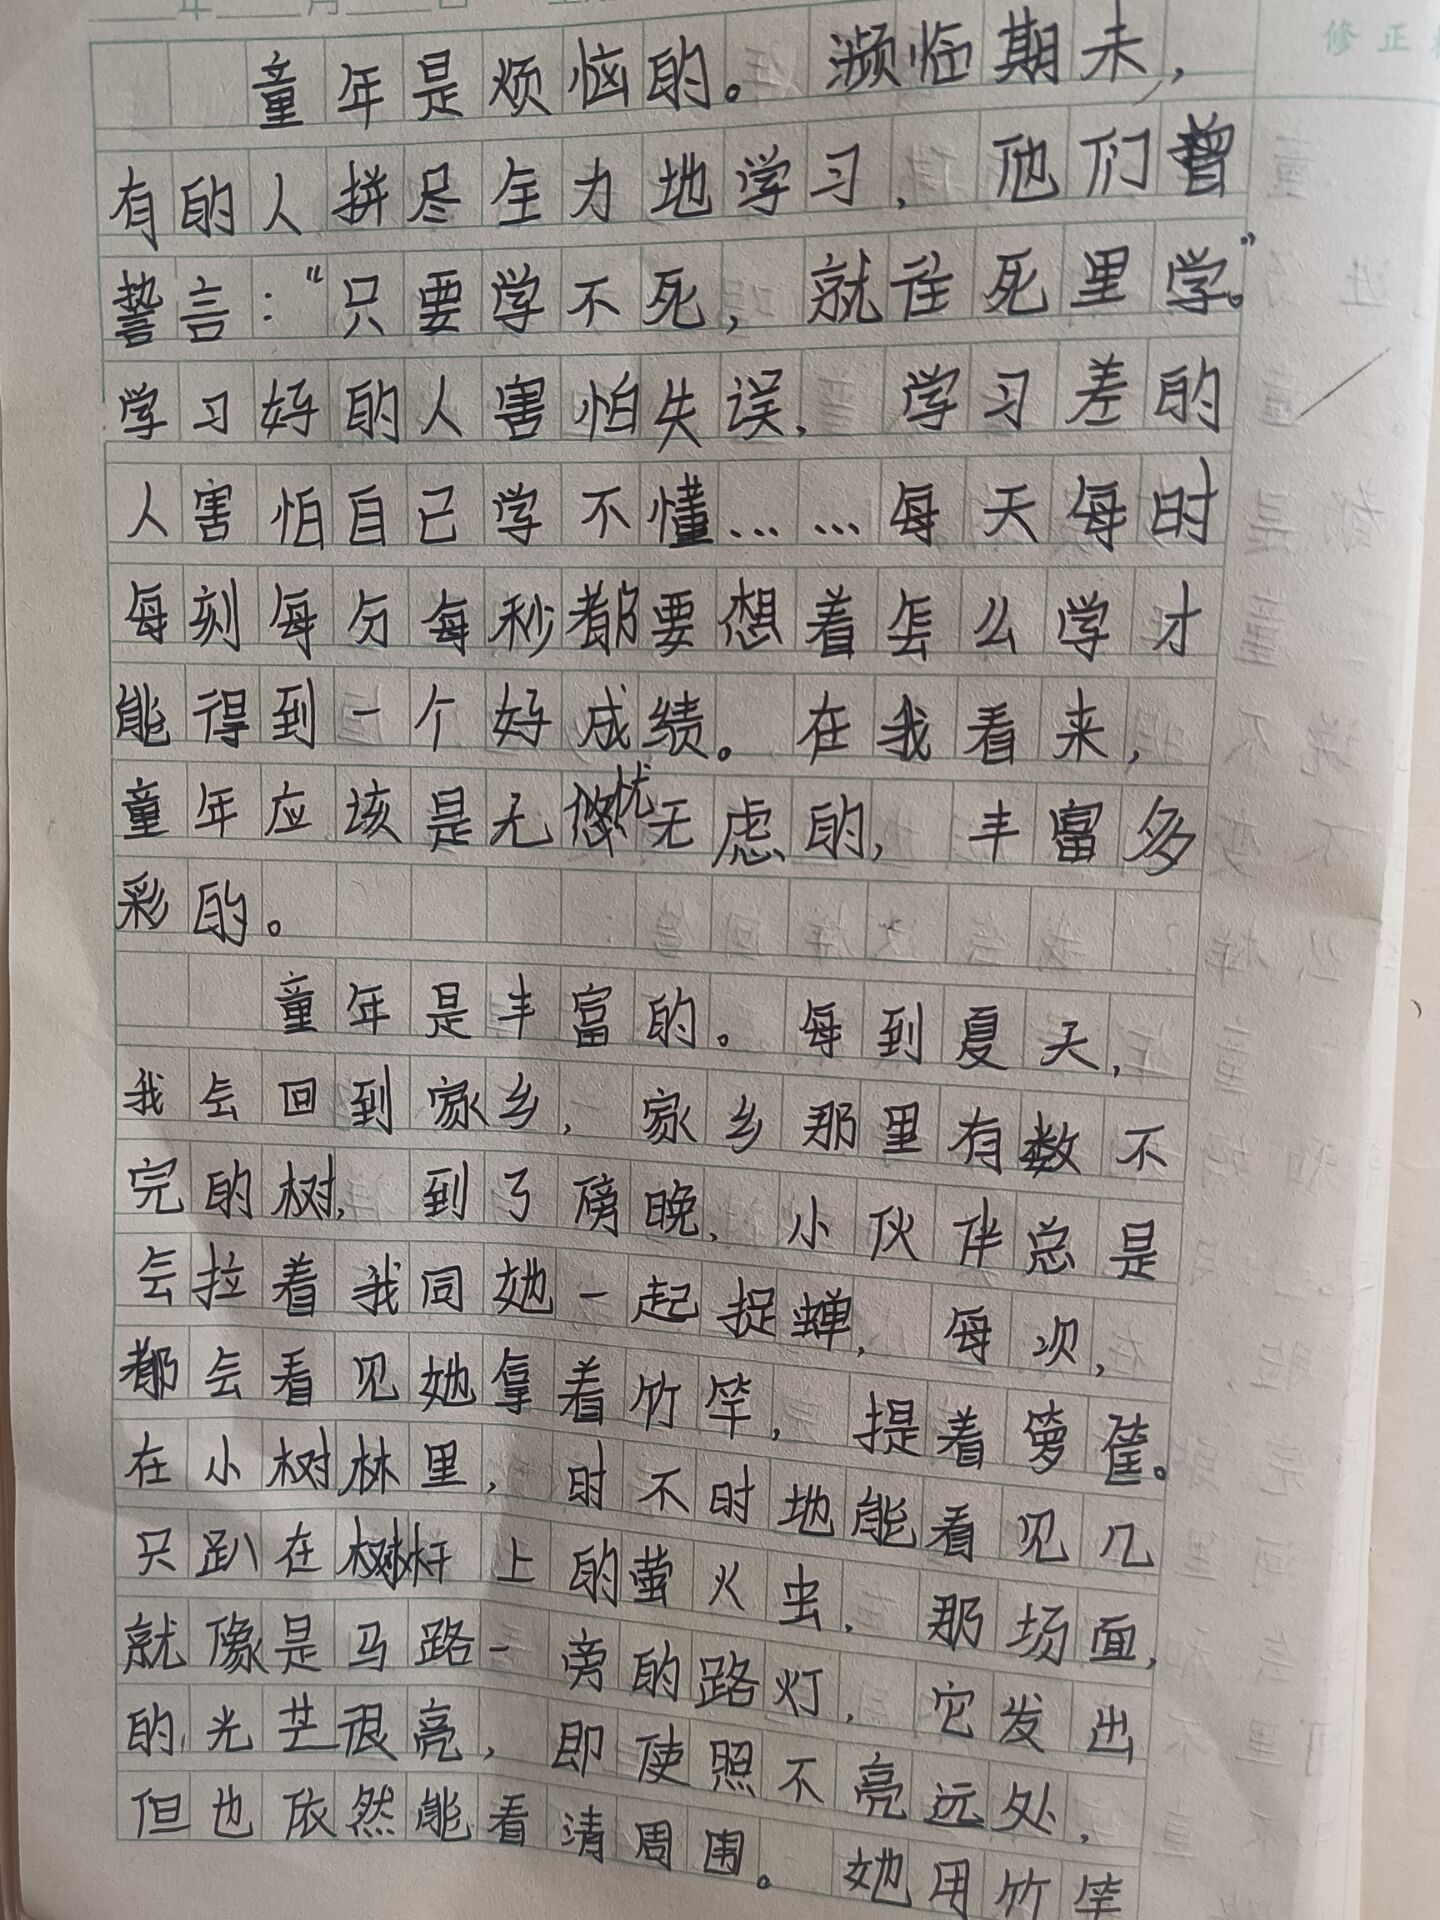 童年是烦恼的。濒临期未，
有的人拼尽全力地学习，他们曾
誓言：“只要学不死，就往死里学。”
学习好的人害怕失误，学习差的
人害怕自己学不懂……每天每时
每刻每分每秒都要想着怎么学才
能得到一个好成绩。在我看来，
童年应该是无忧无虑的，丰富多
彩的。
童年是丰富的。每到夏天，
我会回到家乡，家乡那里有数不
完的树，到了傍晚，小伙伴总是
会拉着我同她一起捉蝉，每次，
都会看见她拿着竹竿，提着箩筐。
在小树林里，时不时地能看见几
只趴在树杆上的萤火虫，那场面，
就像是马路一旁的路灯，它发出
的光芒很亮，即使照不亮远处，
但也依然能看清周围。她用竹竿